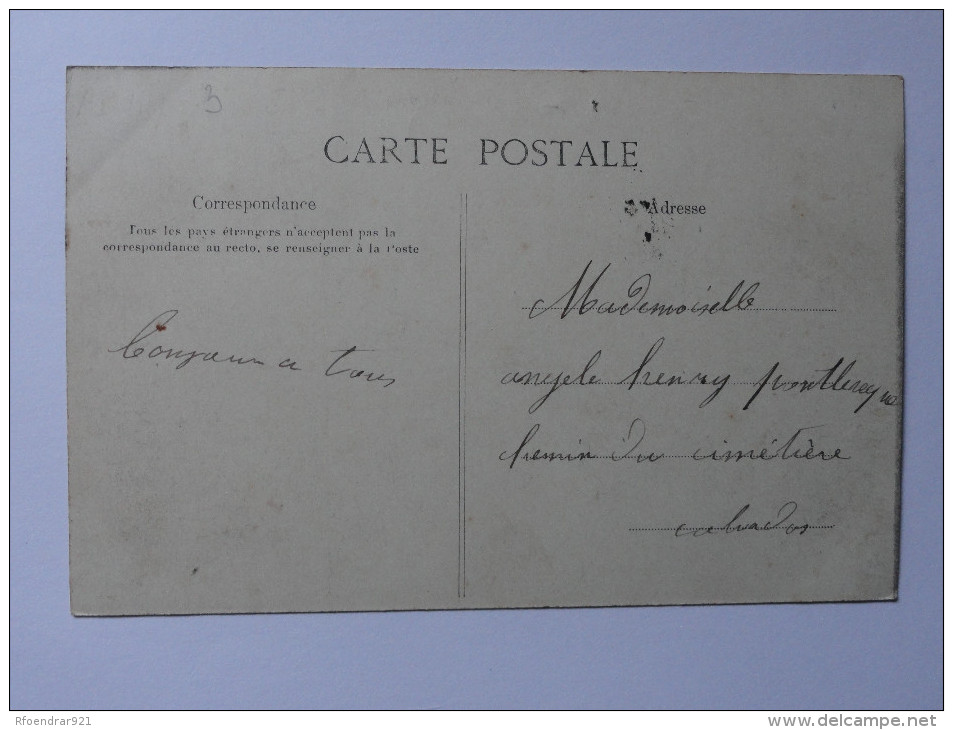 3
CARTE POSTALE
Correspondance
Tous les pays étrangers n'acceptent pas la
correspondance au recto, se renseigner à la Poste
Bonjour a tous
Adresse
Mademoiselle
angele henry pontleveque
chemin du cimétière
calvados
Rfoendrar921
www.delcampe.net